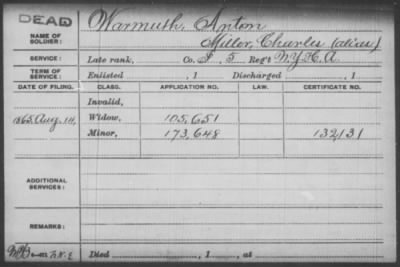 DEAD
Warmuth, Anton
NAME OF SOLDIER:
Miller, Charles (alias)
SERVICE: Late rank, Co. F, 5 Reg't N.Y.H.A.
TERM OF SERVICE: Enlisted , 1 Discharged , 1
DATE OF FILING. CLASS. APPLICATION NO. LAW. CERTIFICATE NO.
Invalid,
1865. Aug. 14, Widow, 105,651
Minor, 173,648 132131
ADDITIONAL SERVICES:
REMARKS:
Died , 1 , at